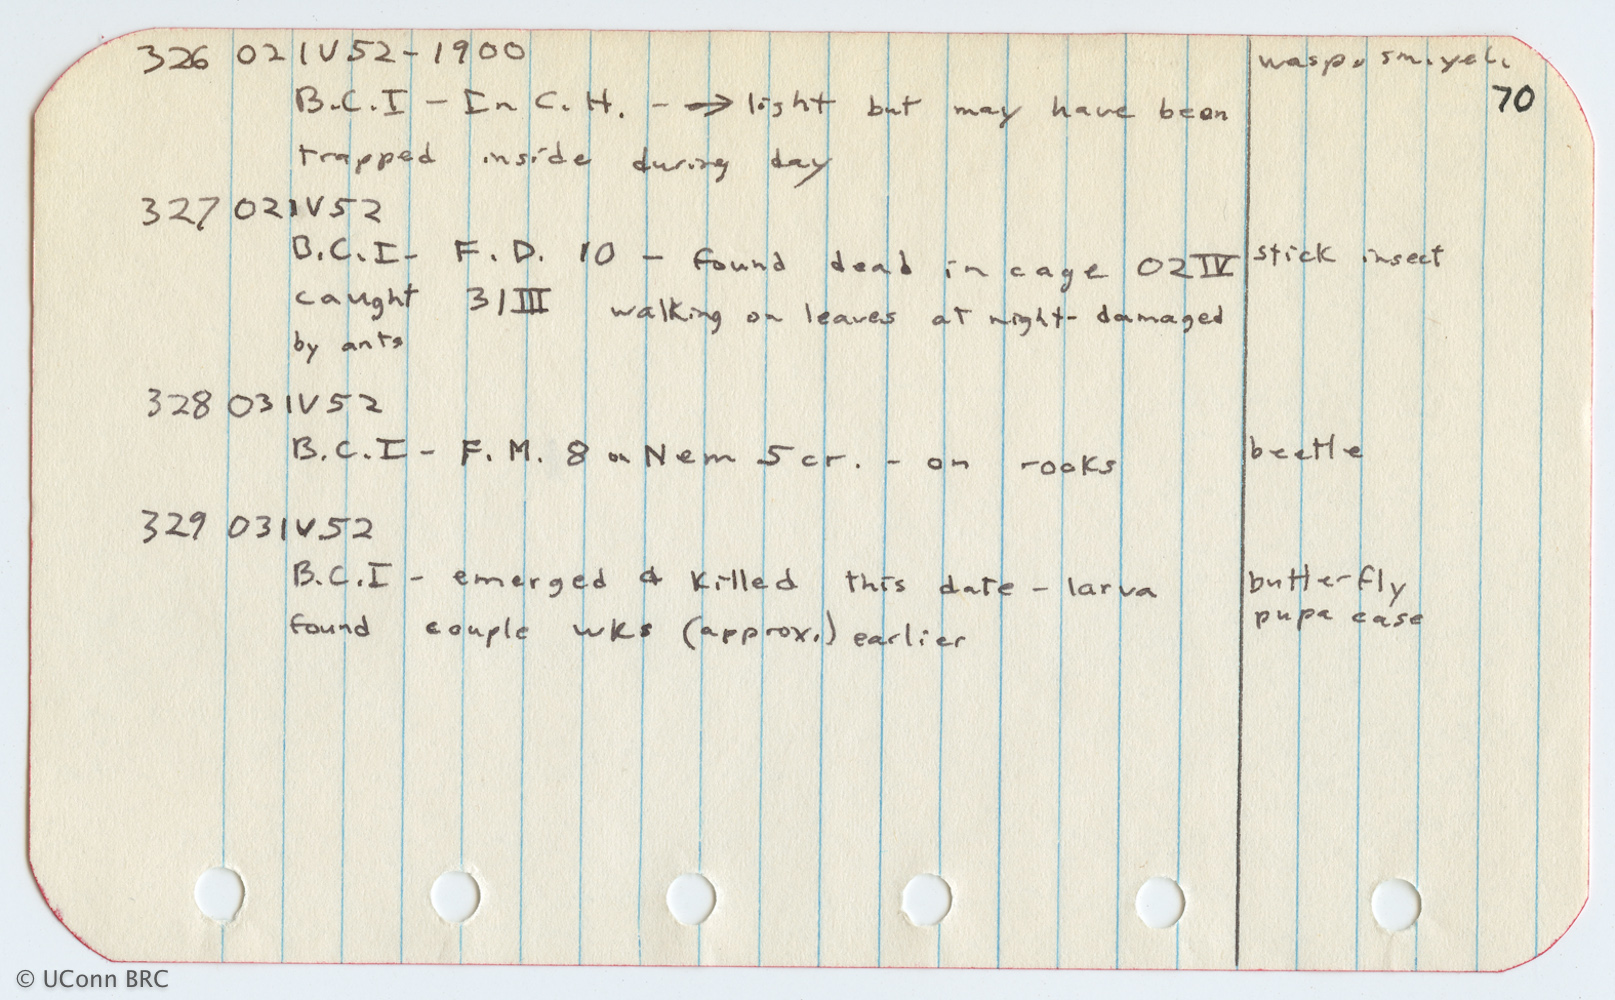 326 02IV52-1900 wasp, sm. yel.
70
B.C.I - In C.H. - → light but may have been
trapped inside during day
327 02IV52
B.C.I- F.D. 10 - found dead in cage 02IV stick insect
caught 31III walking on leaves at night- damaged
by ants
328 03IV52
B.C.I - F.M. 8 on Nem 5 cr. - on rocks beetle
329 03IV52
B.C.I - emerged & killed this date - larva butterfly
found couple wks (approx.) earlier pupa case
© UConn BRC